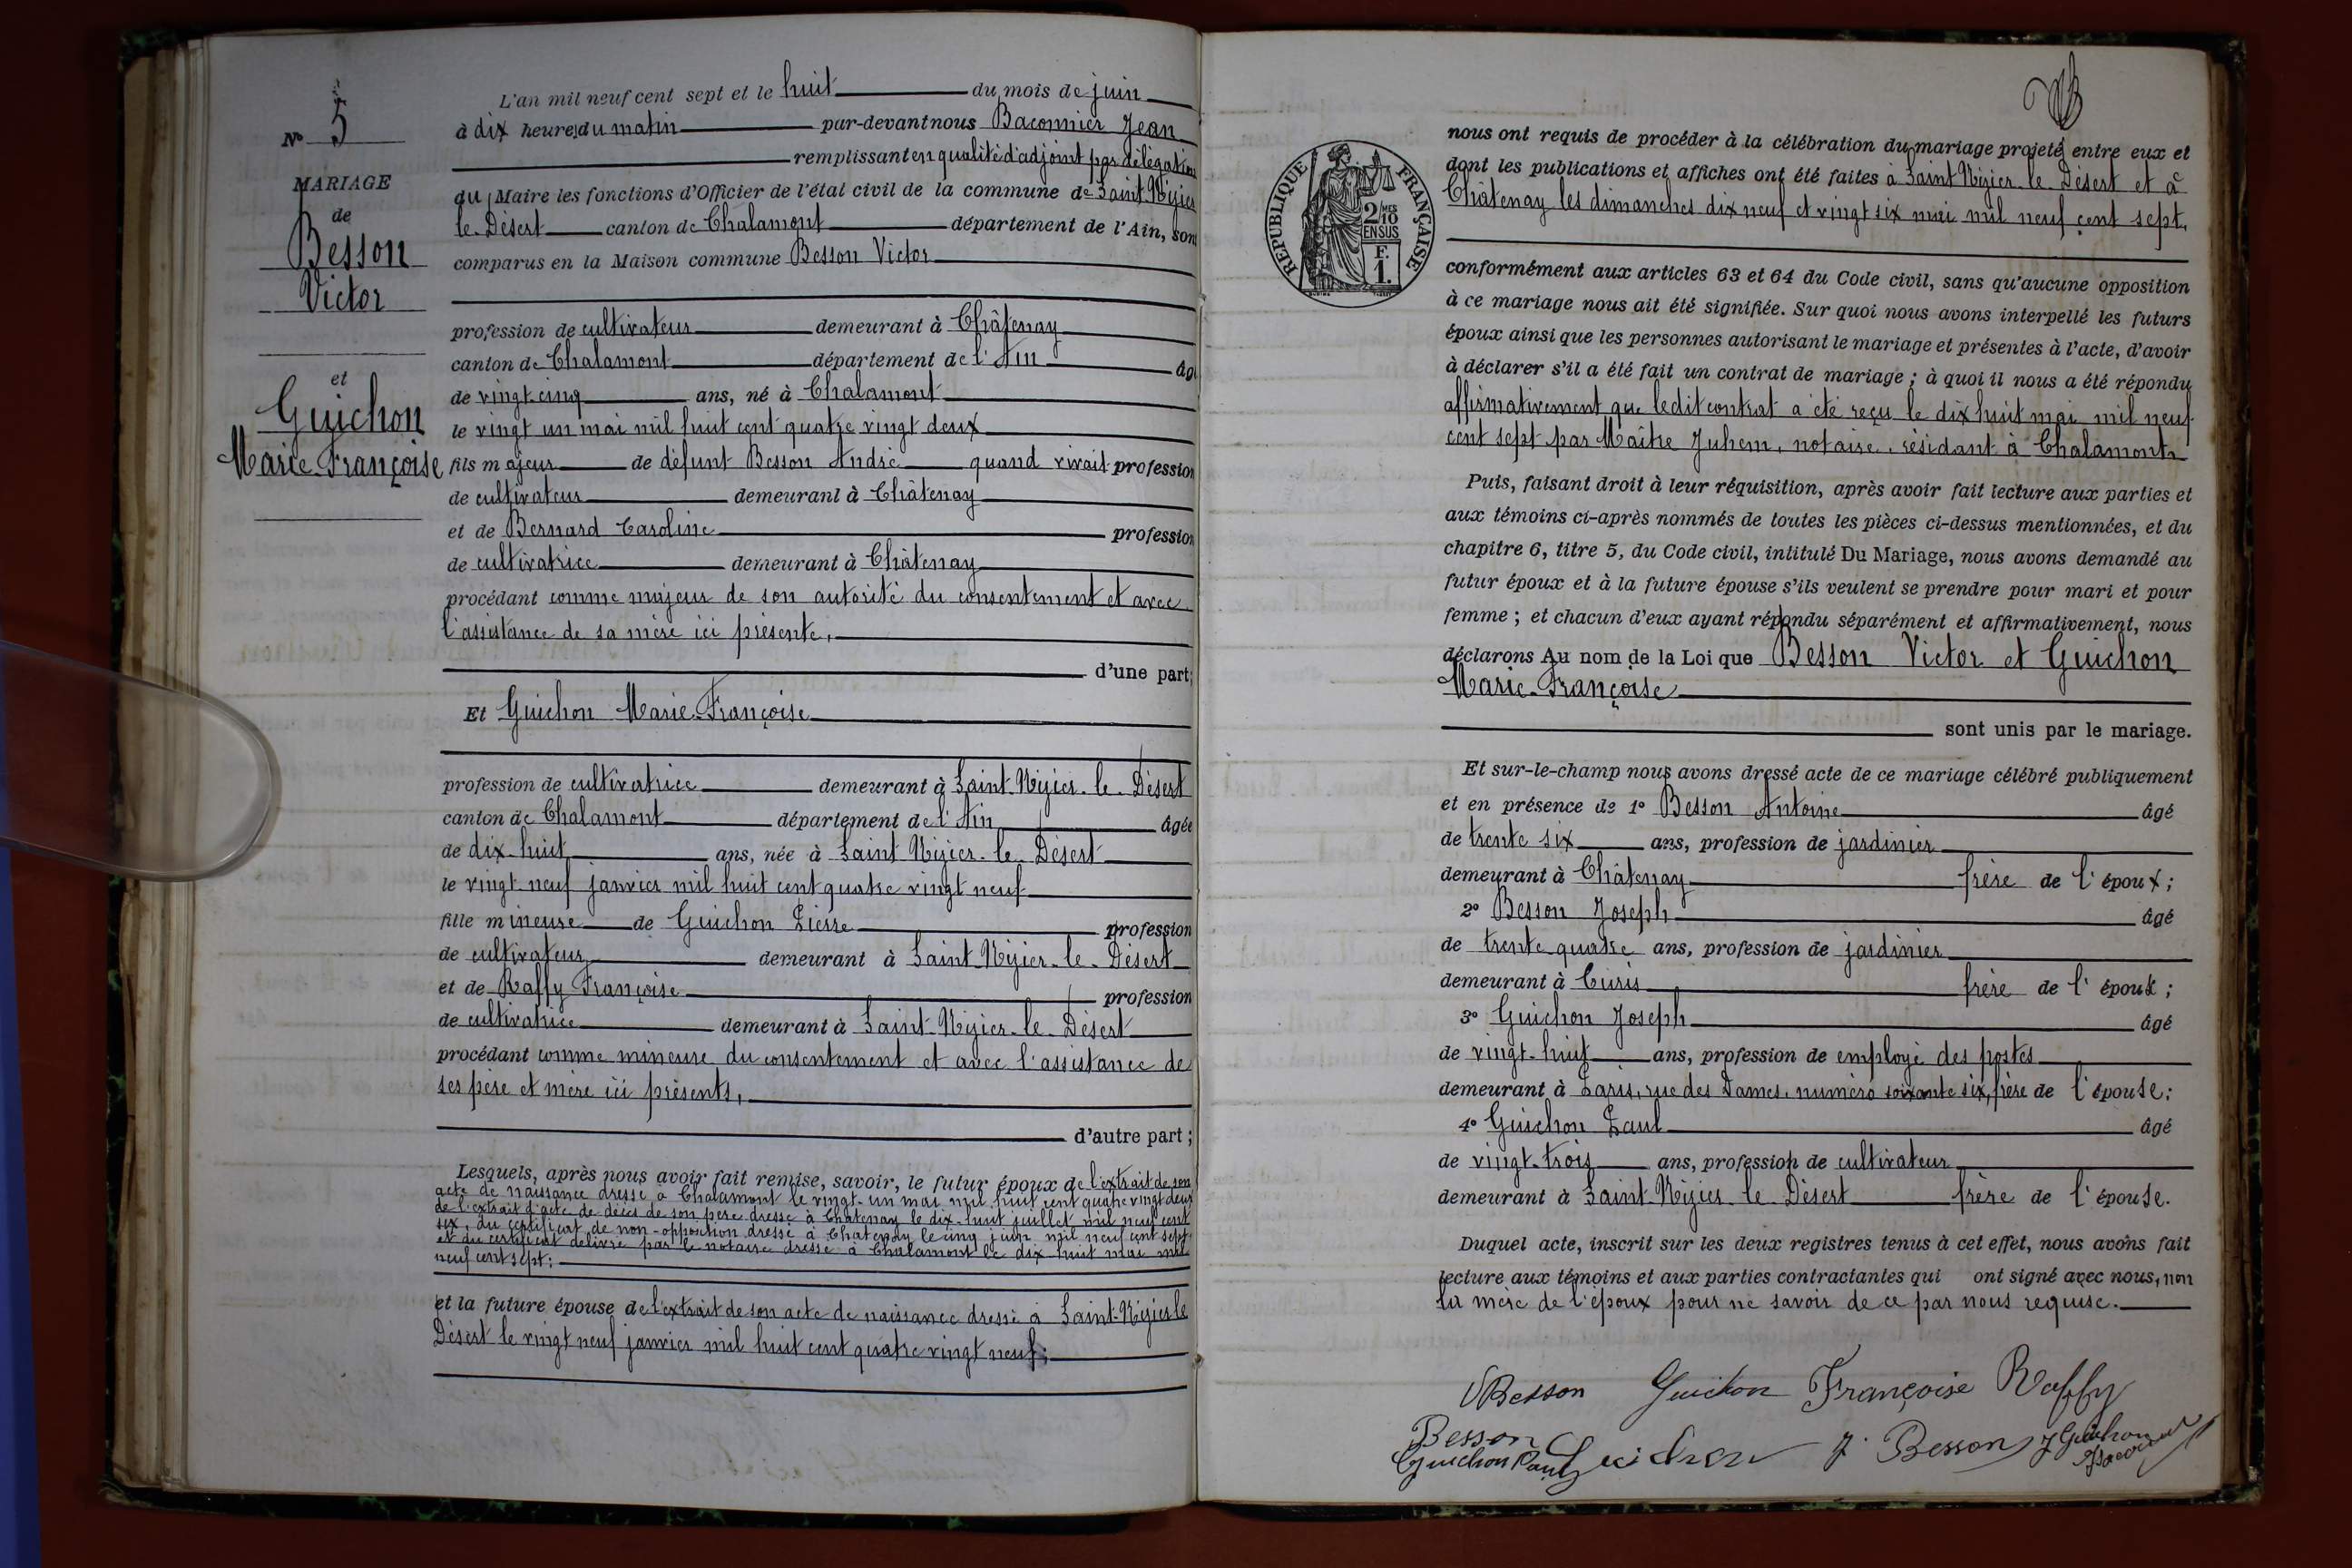 N° 5
MARIAGE
de
Besson
Victor
et
Guichon
Marie-Françoise
L'an mil neuf cent sept et le huit du mois de juin
à dix heures du matin par-devant nous Baconnier Jean
remplissant en qualité d'adjoint par délégation
du Maire les fonctions d'Officier de l'état civil de la commune de Saint-Nizier
le-Désert canton de Chalamont département de l'Ain, sont
comparus en la Maison commune Besson Victor
profession de cultivateur demeurant à Châtenay
canton de Chalamont département de l'Ain âgé
de vingt cinq ans, né à Chalamont
le vingt un mai mil huit cent quatre vingt deux
fils majeur de défunt Besson André quand vivait profession
de cultivateur demeurant à Châtenay
et de Bernard Caroline profession
de cultivatrice demeurant à Châtenay
procédant comme majeur de son autorité du consentement et avec
l'assistance de sa mère ici présente,
d'une part;
Et Guichon Marie-Françoise
profession de cultivatrice demeurant à Saint-Nizier-le-Désert
canton de Chalamont département de l'Ain âgée
de dix-huit ans, née à Saint Nizier-le-Désert
le vingt-neuf janvier mil huit cent quatre vingt neuf
fille mineure de Guichon Pierre profession
de cultivateur demeurant à Saint-Nizier-le-Désert
et de Raffy Françoise profession
de cultivatrice demeurant à Saint-Nizier-le-Désert
procédant comme mineure du consentement et avec l'assistance de
ses père et mère ici présents,
d'autre part;
Lesquels, après nous avoir fait remise, savoir, le futur époux de l'extrait de son
acte de naissance dressé à Chalamont le vingt-un mai mil huit cent quatre vingt deux
de l'extrait d'acte de décès de son père dressé à Châtenay le dix-huit juillet mil neuf cent
six, du certificat de non-opposition dressé à Chatenay le cinq juin mil neuf cent sept
et du certificat délivré par le notaire dressé à Chalamont le dix-huit mai mil
neuf cent sept;
et la future épouse de l'extrait de son acte de naissance dressé à Saint-Nizier le
Désert le vingt neuf janvier mil huit cent quatre vingt neuf;
RÉPUBLIQUE FRANÇAISE
2/10 MES
EN SUS
F.
1.
nous ont requis de procéder à la célébration du mariage projeté entre eux et
dont les publications et affiches ont été faites à Saint Nizier-le-Désert et à
Châtenay les dimanches dix neuf et vingt six mai mil neuf cent sept,
conformément aux articles 63 et 64 du Code civil, sans qu'aucune opposition
à ce mariage nous ait été signifiée. Sur quoi nous avons interpellé les futurs
époux ainsi que les personnes autorisant le mariage et présentes à l'acte, d'avoir
à déclarer s'il a été fait un contrat de mariage; à quoi il nous a été répondu
affirmativement que ledit contrat a été reçu le dix huit mai mil neuf
cent sept par Maître Juhem, notaire, résidant à Chalamont
Puis, faisant droit à leur réquisition, après avoir fait lecture aux parties et
aux témoins ci-après nommés de toutes les pièces ci-dessus mentionnées, et du
chapitre 6, titre 5, du Code civil, intitulé Du Mariage, nous avons demandé au
futur époux et à la future épouse s'ils veulent se prendre pour mari et pour
femme; et chacun d'eux ayant répondu séparément et affirmativement, nous
déclarons Au nom de la Loi que Besson Victor et Guichon
Marie-Françoise
sont unis par le mariage.
Et sur-le-champ nous avons dressé acte de ce mariage célébré publiquement
et en présence de 1° Besson Antoine âgé
de trente six ans, profession de jardinier
demeurant à Châtenay frère de l'époux;
2° Besson Joseph âgé
de trente quatre ans, profession de jardinier
demeurant à Curis frère de l'époux;
3° Guichon Joseph âgé
de vingt-huit ans, profession de employé des postes
demeurant à Paris, rue des Dames, numéro soixante six, frère de l'épouse;
4° Guichon Paul âgé
de vingt-trois ans, profession de cultivateur
demeurant à Saint-Nizier le Désert frère de l'épouse.
Duquel acte, inscrit sur les deux registres tenus à cet effet, nous avons fait
lecture aux témoins et aux parties contractantes qui ont signé avec nous, non
la mère de l'époux pour ne savoir de ce par nous requise.
VBesson Guichon Françoise Raffy
Besson Guichon J. Besson J Guichon
Guichon Paul